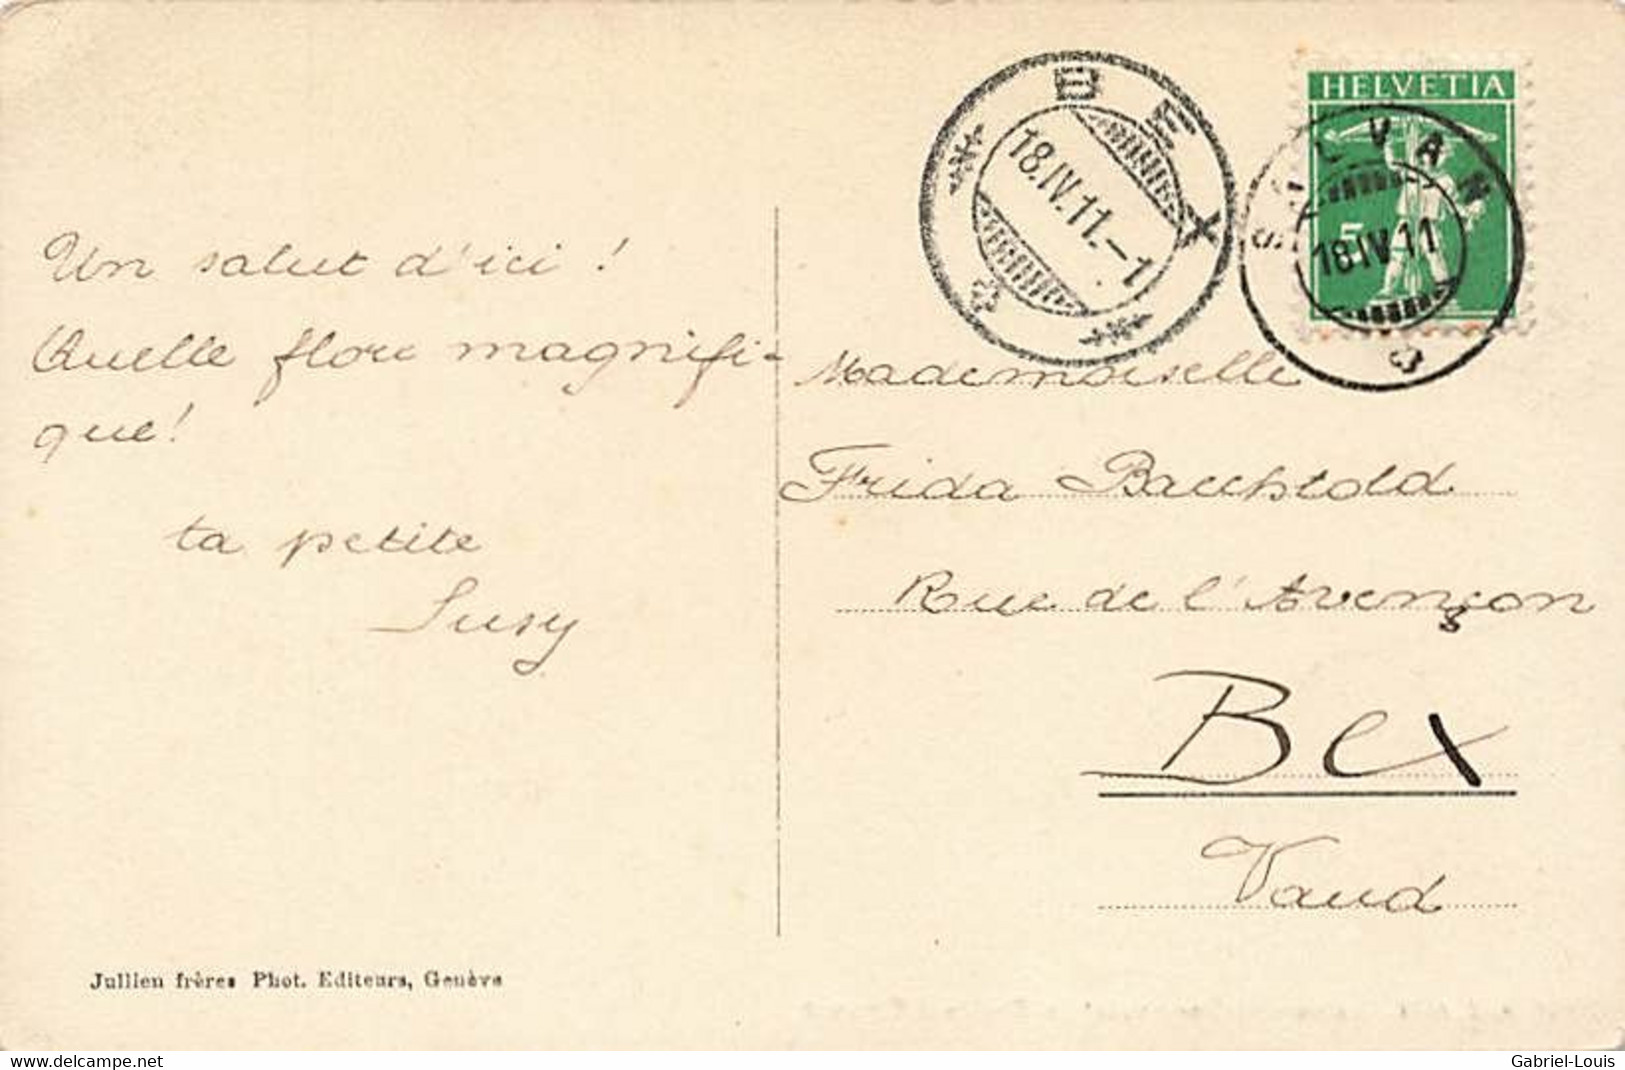 Un salut d'ici !
Quelle flore magnifi-
que!
ta petite
Susy
Jullien frères Phot. Editeurs, Genève
BEX
18.IV.11.–1
HELVETIA
5
SALVAN
18 IV 11
Mademoiselle
Frida Baechtold
Rue de l'Avençon
Bex
Vaud
www.delcampe.net
Gabriel-Louis